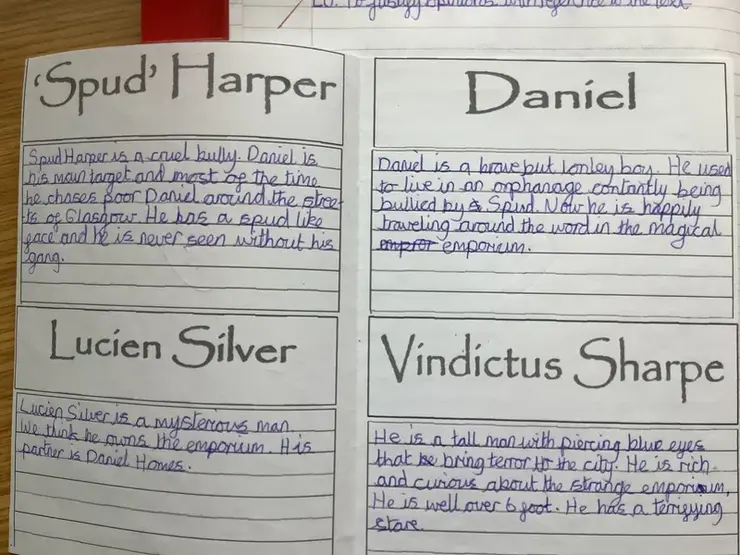 LO. To justify opinions with reference to the text
'Spud' Harper
Spud Harper is a cruel bully. Daniel is
his main target and most of the time
he chases poor Daniel around the stree
ts of Glasgow. He has a spud like
face and he is never seen without his
gang.
Daniel
Daniel is a brave but lonley boy. He used
to live in an orphanage contantly being
bullied by Spud. Now he is happily
traveling around the word in the magical
empror emporium.
Lucien Silver
Lucien Silver is a mysterious man.
We think he owns the emporium. His
partner is Daniel Homes.
Vindictus Sharpe
He is a tall man with piercing blue eyes
that bring terror to the city. He is rich
and curious about the strange emporium,
He is well over 6 foot. He has a terrifying
stare.